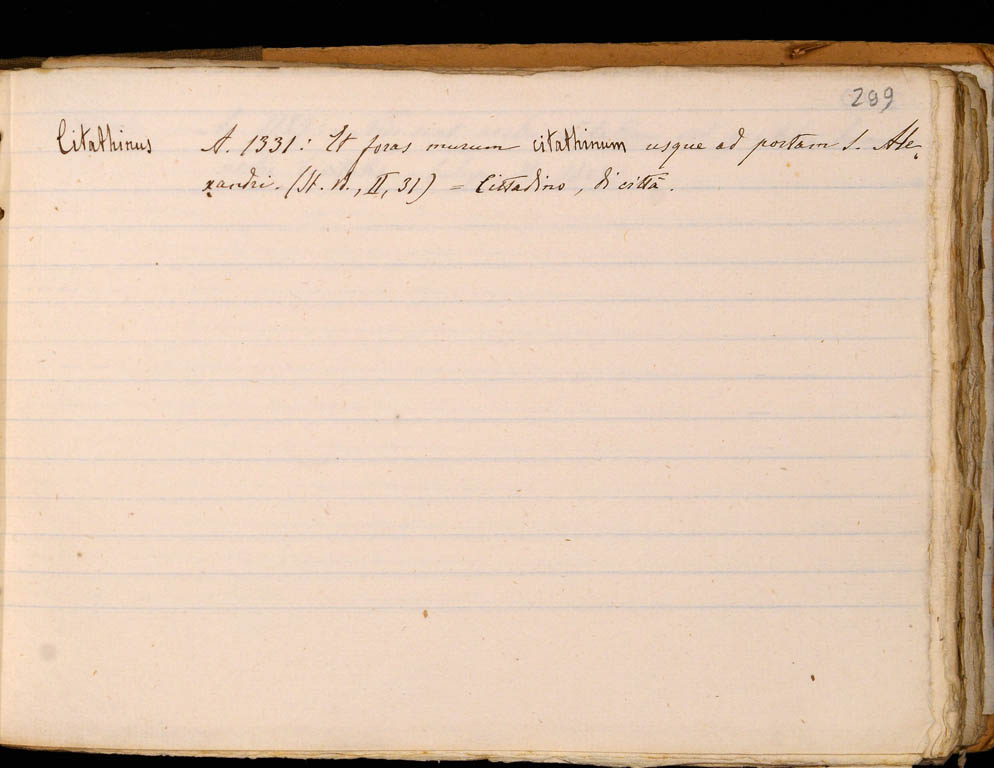 299
Citathinus A. 1331: Et foras murum citathinum usque ad portam S. Ale-
xandri. (St. B., II, 31) = Cittadino, di città.